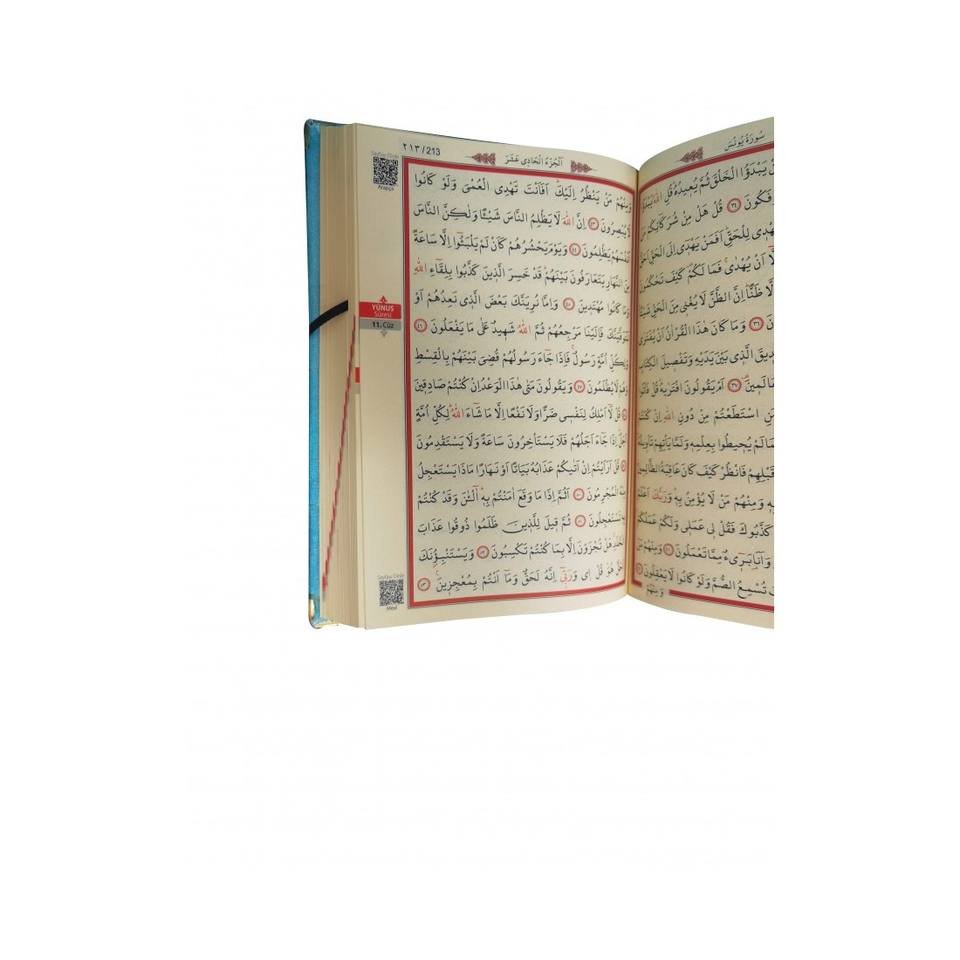 سُورَةُ يُونُسَ
يَبْدَؤُا الْخَلْقَ ثُمَّ يُعِيدُهُ قُلِ اللّٰهُ
قُلْ هَلْ مِنْ شُرَكَائِكُمْ مَنْ ٣٤
يَهْدِى لِلْحَقِّ اَفَمَنْ يَهْدِى اِلَى الْحَقِّ اَحَقُّ
اَنْ يُهْدٰى فَمَا لَكُمْ كَيْفَ تَحْكُمُونَ
ظَنًّا اِنَّ الظَّنَّ لَا يُغْنِى مِنَ الْحَقِّ
٣٦ وَمَا كَانَ هٰذَا الْقُرْاٰنُ اَنْ يُفْتَرٰى
الَّذِى بَيْنَ يَدَيْهِ وَتَفْصِيلَ الْكِتَابِ
٣٧ اَمْ يَقُولُونَ افْتَرٰيهُ قُلْ
اسْتَطَعْتُمْ مِنْ دُونِ اللّٰهِ اِنْ كُنْتُمْ
لَمْ يُحِيطُوا بِعِلْمِهِ وَلَمَّا يَأْتِهِمْ تَأْوِيلُهُ
قَبْلِهِمْ فَانْظُرْ كَيْفَ كَانَ عَاقِبَةُ الظَّالِمِينَ
وَمِنْهُمْ مَنْ لَا يُؤْمِنُ بِهِ وَرَبُّكَ اَعْلَمُ
كَذَّبُوكَ فَقُلْ لِى عَمَلِى وَلَكُمْ عَمَلُكُمْ
وَاَنَا بَرِىءٌ مِمَّا تَعْمَلُونَ ٤١ وَمِنْهُمْ مَنْ
تُسْمِعُ الصُّمَّ وَلَوْ كَانُوا لَا يَعْقِلُونَ
وَمِنْهُمْ
٢١٣/213
اَلْجُزْءُ الْحَادِى عَشَرَ
وَمِنْهُمْ مَنْ يَنْظُرُ اِلَيْكَ اَفَاَنْتَ تَهْدِى الْعُمْىَ وَلَوْ كَانُوا
لَا يُبْصِرُونَ ٤٣ اِنَّ اللّٰهَ لَا يَظْلِمُ النَّاسَ شَيْئًا وَلٰكِنَّ النَّاسَ
اَنْفُسَهُمْ يَظْلِمُونَ ٤٤ وَيَوْمَ يَحْشُرُهُمْ كَاَنْ لَمْ يَلْبَثُوا اِلَّا سَاعَةً
مِنَ النَّهَارِ يَتَعَارَفُونَ بَيْنَهُمْ قَدْ خَسِرَ الَّذِينَ كَذَّبُوا بِلِقَاءِ اللّٰهِ
وَمَا كَانُوا مُهْتَدِينَ ٤٥ وَاِمَّا نُرِيَنَّكَ بَعْضَ الَّذِى نَعِدُهُمْ اَوْ
نَتَوَفَّيَنَّكَ فَاِلَيْنَا مَرْجِعُهُمْ ثُمَّ اللّٰهُ شَهِيدٌ عَلٰى مَا يَفْعَلُونَ ٤٦
وَلِكُلِّ اُمَّةٍ رَسُولٌ فَاِذَا جَاءَ رَسُولُهُمْ قُضِىَ بَيْنَهُمْ بِالْقِسْطِ
وَهُمْ لَا يُظْلَمُونَ ٤٧ وَيَقُولُونَ مَتٰى هٰذَا الْوَعْدُ اِنْ كُنْتُمْ صَادِقِينَ
قُلْ لَا اَمْلِكُ لِنَفْسِى ضَرًّا وَلَا نَفْعًا اِلَّا مَا شَاءَ اللّٰهُ لِكُلِّ اُمَّةٍ
اَجَلٌ اِذَا جَاءَ اَجَلُهُمْ فَلَا يَسْتَأْخِرُونَ سَاعَةً وَلَا يَسْتَقْدِمُونَ
قُلْ اَرَاَيْتُمْ اِنْ اَتٰيكُمْ عَذَابُهُ بَيَاتًا اَوْ نَهَارًا مَاذَا يَسْتَعْجِلُ
مِنْهُ الْمُجْرِمُونَ ٥٠ اَثُمَّ اِذَا مَا وَقَعَ اٰمَنْتُمْ بِهِ اٰلْـٰٔنَ وَقَدْ كُنْتُمْ
بِهِ تَسْتَعْجِلُونَ ٥١ ثُمَّ قِيلَ لِلَّذِينَ ظَلَمُوا ذُوقُوا عَذَابَ
الْخُلْدِ هَلْ تُجْزَوْنَ اِلَّا بِمَا كُنْتُمْ تَكْسِبُونَ ٥٢ وَيَسْتَنْبِؤُنَكَ
اَحَقٌّ هُوَ قُلْ اِى وَرَبِّى اِنَّهُ لَحَقٌّ وَمَا اَنْتُمْ بِمُعْجِزِينَ ٥٣
Arapça
YÛNUS
Sûresi
11. Cüz
Meal